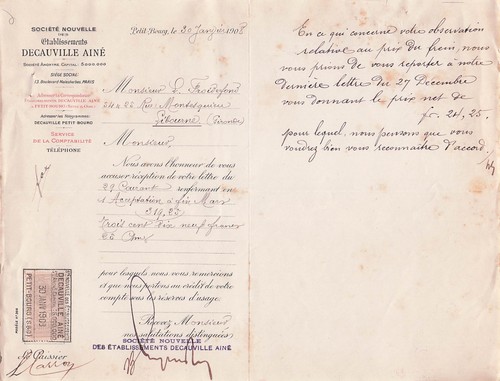 SOCIÉTÉ NOUVELLE
DES
Etablissements
DECAUVILLE AINÉ
SOCIÉTÉ ANONYME. CAPITAL: 5.000.000
SIÈGE SOCIAL
13, Boulevard Malesherbes, PARIS
Adresser la Correspondance
Etablissements DECAUVILLE AINÉ
à PETIT-BOURG
ADRESSE TÉLÉGRAPHIQUE:
DECAUVILLE PETIT-BOURG
SERVICE
DE LA COMPTABILITÉ
TÉLÉPHONE
Petit-Bourg, le 30 Janvier 1908
Monsieur L.
Rue Montesquieu
Libourne (Gironde)
Monsieur,
Nous avons l'honneur de vous
accuser réception de votre lettre du
29 Courant renfermant en
1 Acceptation à fin Mars
319,25
Trois cent dix neuf francs
25 Cmes
pour lesquels nous vous remercions
et que nous portons au crédit de votre
compte sous les réserves d'usage.
Recevez Monsieur
nos salutations distinguées
SOCIÉTÉ NOUVELLE
DES ÉTABLISSEMENTS DECAUVILLE AINÉ
DECAUVILLE AINÉ
30 JANV 1908
PETIT-BOURG (S&O)
En ce qui concerne votre observation
relative au prix du frein, nous
vous prions de vous reporter à notre
dernière lettre du 27 Décembre
vous donnant le prix net de
fr. 24,25.
pour lequel nous pensons que vous
voudrez bien vous reconnaître d'accord.